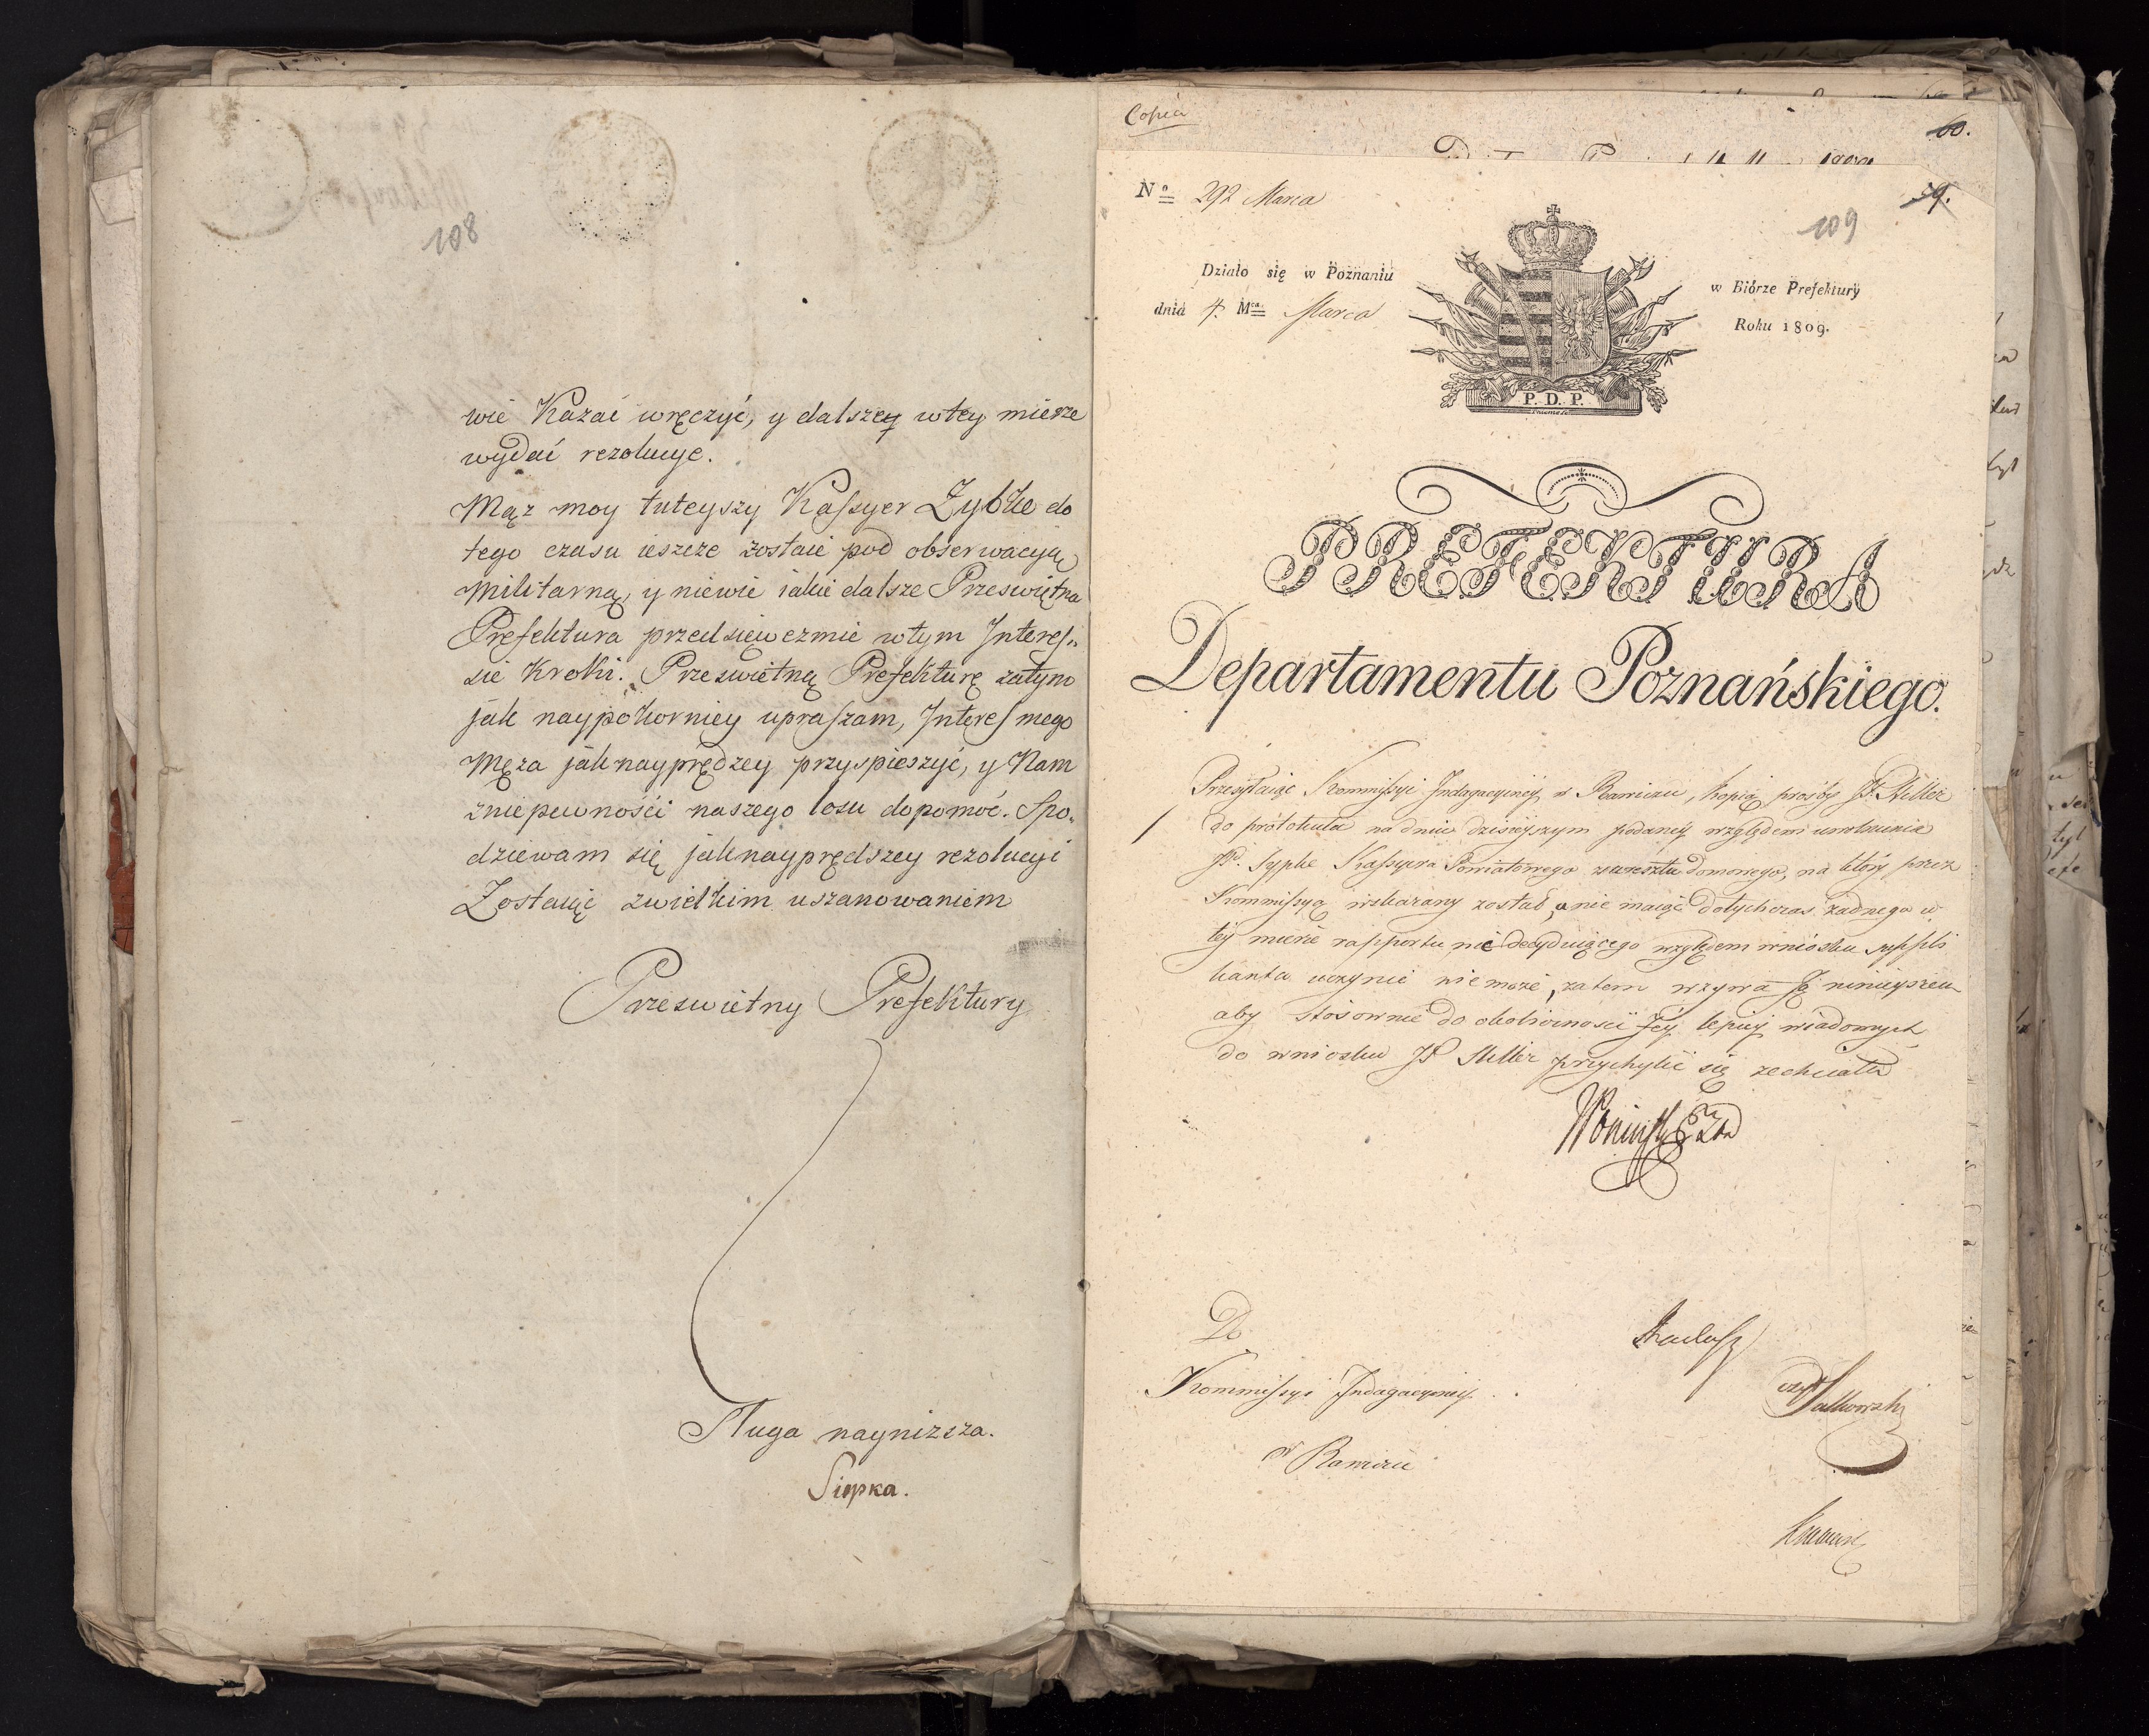 108
wie Kazać wręczyć, y dalszey wtey mierze
wydać rezolucye.
Mąz moy tuteyszy Kassyer Zybke do
tego czasu ieszcze zostaie pod obserwacyą
Militarną, y niewie iakie dalsze Prześwietna
Prefektura przedsiewezmie wtym Interes„
sie Kroki. Prześwietną Prefekturę zatym
jak naypokorniey upraszam, Interes mego
Męża jaknayprędzey przyspieszyć, y Nam
zniepewności naszego losu dopomoć. Spo„
dziewam się jaknayprędszey rezolucyi
Zostaiąc zwielkim uszanowaniem
Prześwietny Prefektury
Sługa naynizsza.
Siepka.
Copia
60.
No 292 Marca
59.
109
Działo się w Poznaniu
dnia 4. Mca Marca
w Biórze Prefektury
Roku 1809.
P. D. P.
PREFEKTURA
Departamentu Poznańskiego.
Przesyłaiąc Kommissyi Indagacyiney w Rawiczu, kopią prośby JP. Miller
do protokułu na dniu dzisieyszym podaney względem uwolnienia
JP. Sypke Kassyera Powiatowego z aresztu domowego, na który przez
Kommissyą wskazany został, a nie maiąc dotychczas żadnego w
tey mierze rapportu nic decyduiącego względem wniosku suppli
kanta uczynić nie może, zatem wzywa Ją ninieyszem
aby stósownie do okoliczności Jey lepiey wiadomych
do wniosku JP Miller przychylić się zechciała
Do
Kommissyi Indagacyiney
w Rawiczu